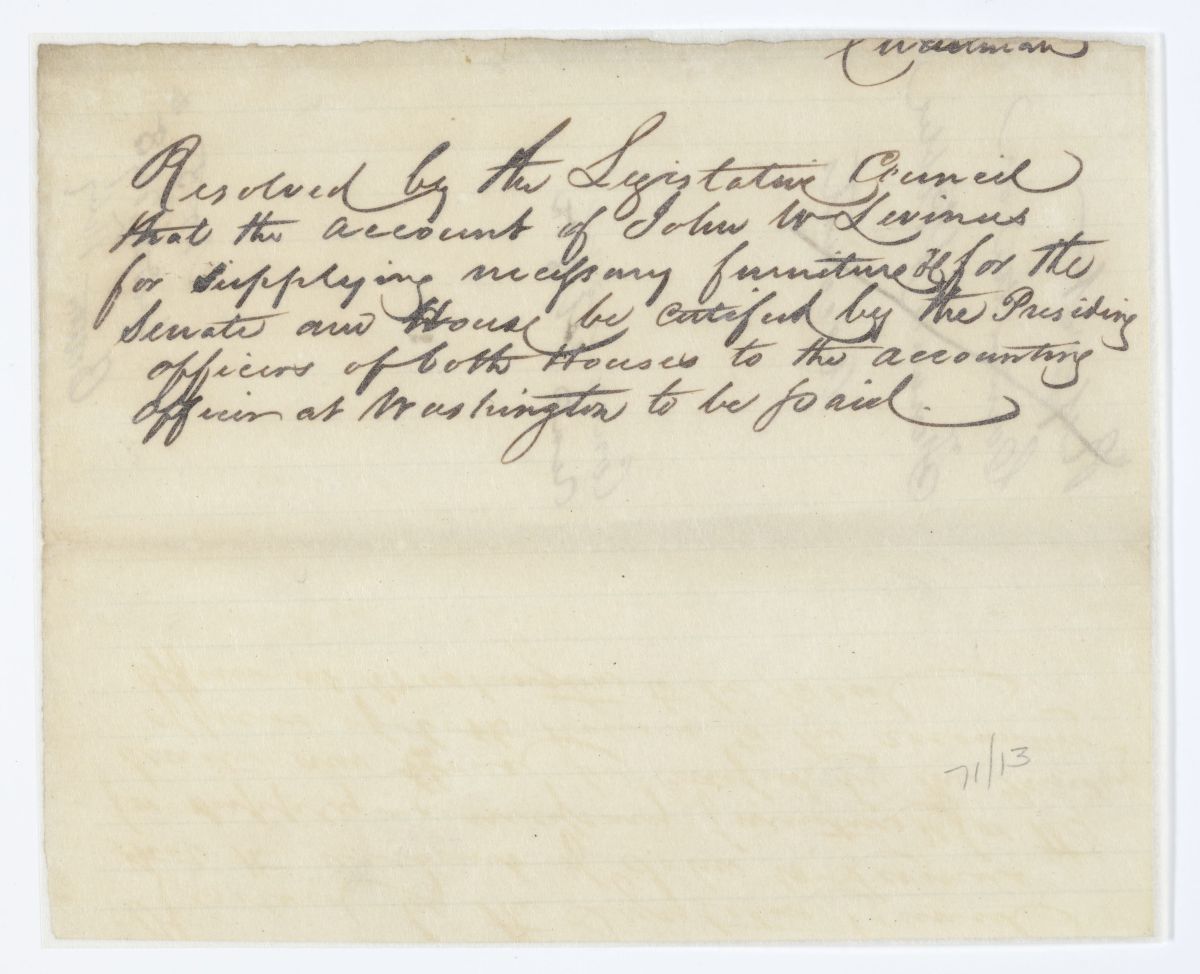 Resolved by the Legistative Council
that the account of John W Levinus
for supplying necessary furniture &c for the
Senate and House be certified by the Presiding
officers of both Houses to the accounting
officer at Washington to be paid.
71/13